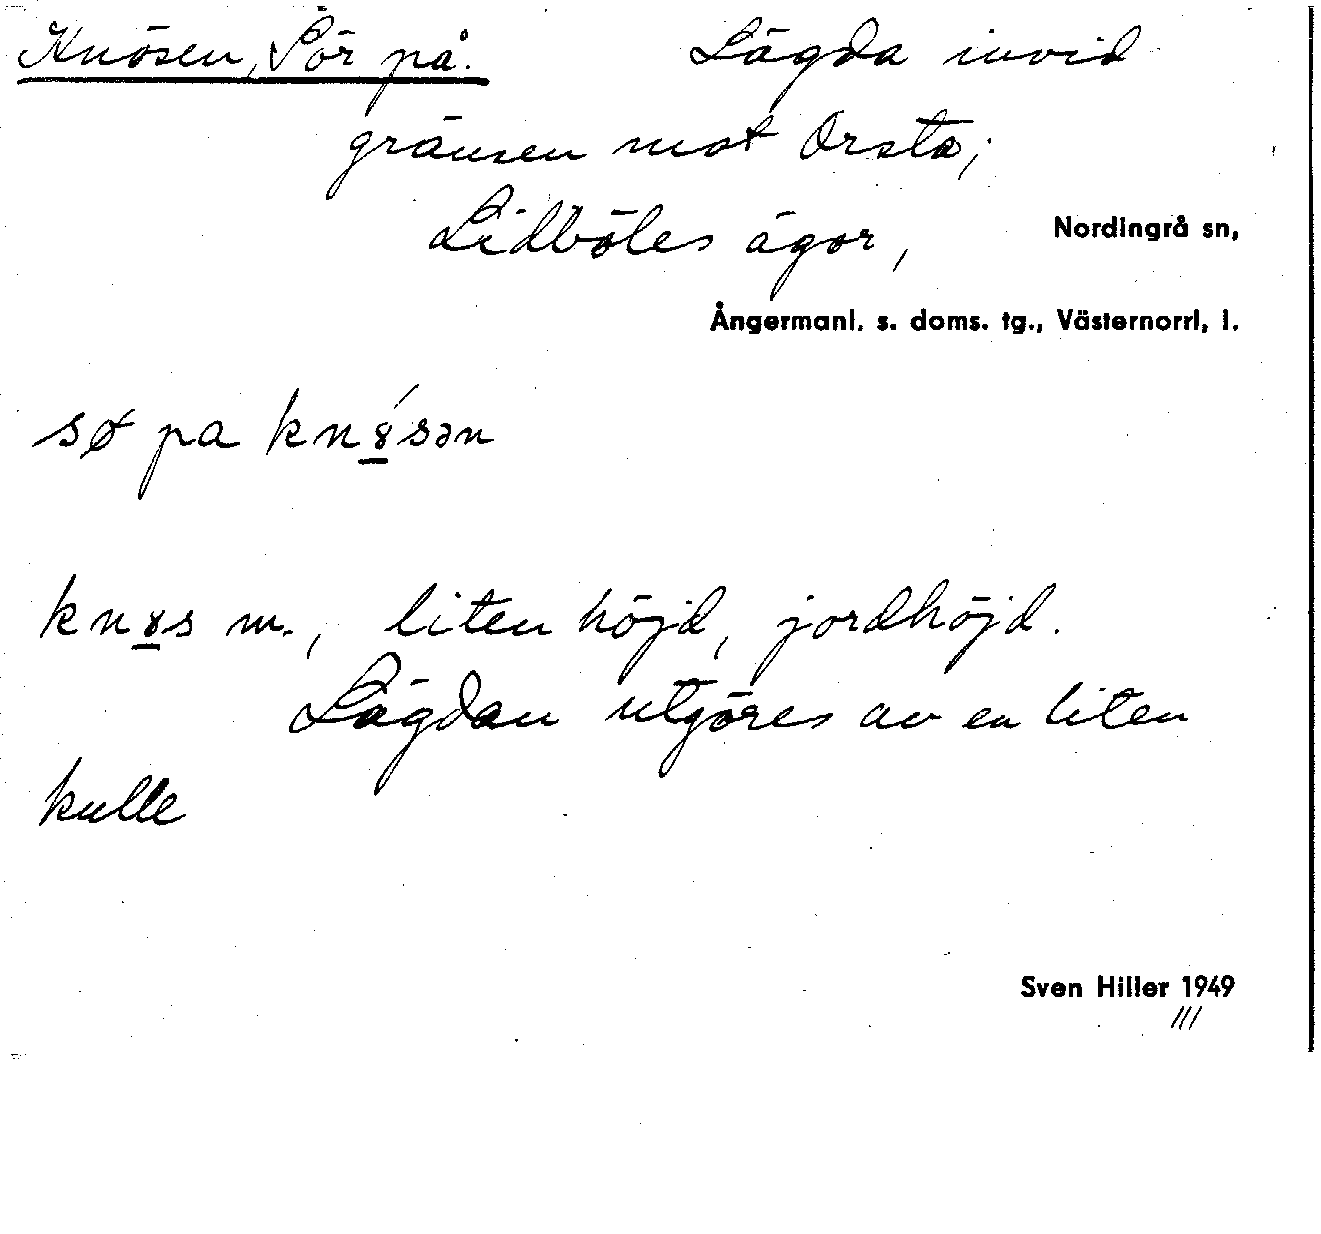 Knösen, Sör på. Lägda invid
gränsen mot Orsta;
Lidböles ägor, Nordingrå sn,
Ångermanl. s. doms. tg., Västernorrl. l.
sø pa kn8́sən
kn8s m., liten höjd, jordhöjd.
Lägdan utgöres av en liten
kulle
Sven Hiller 1949
///